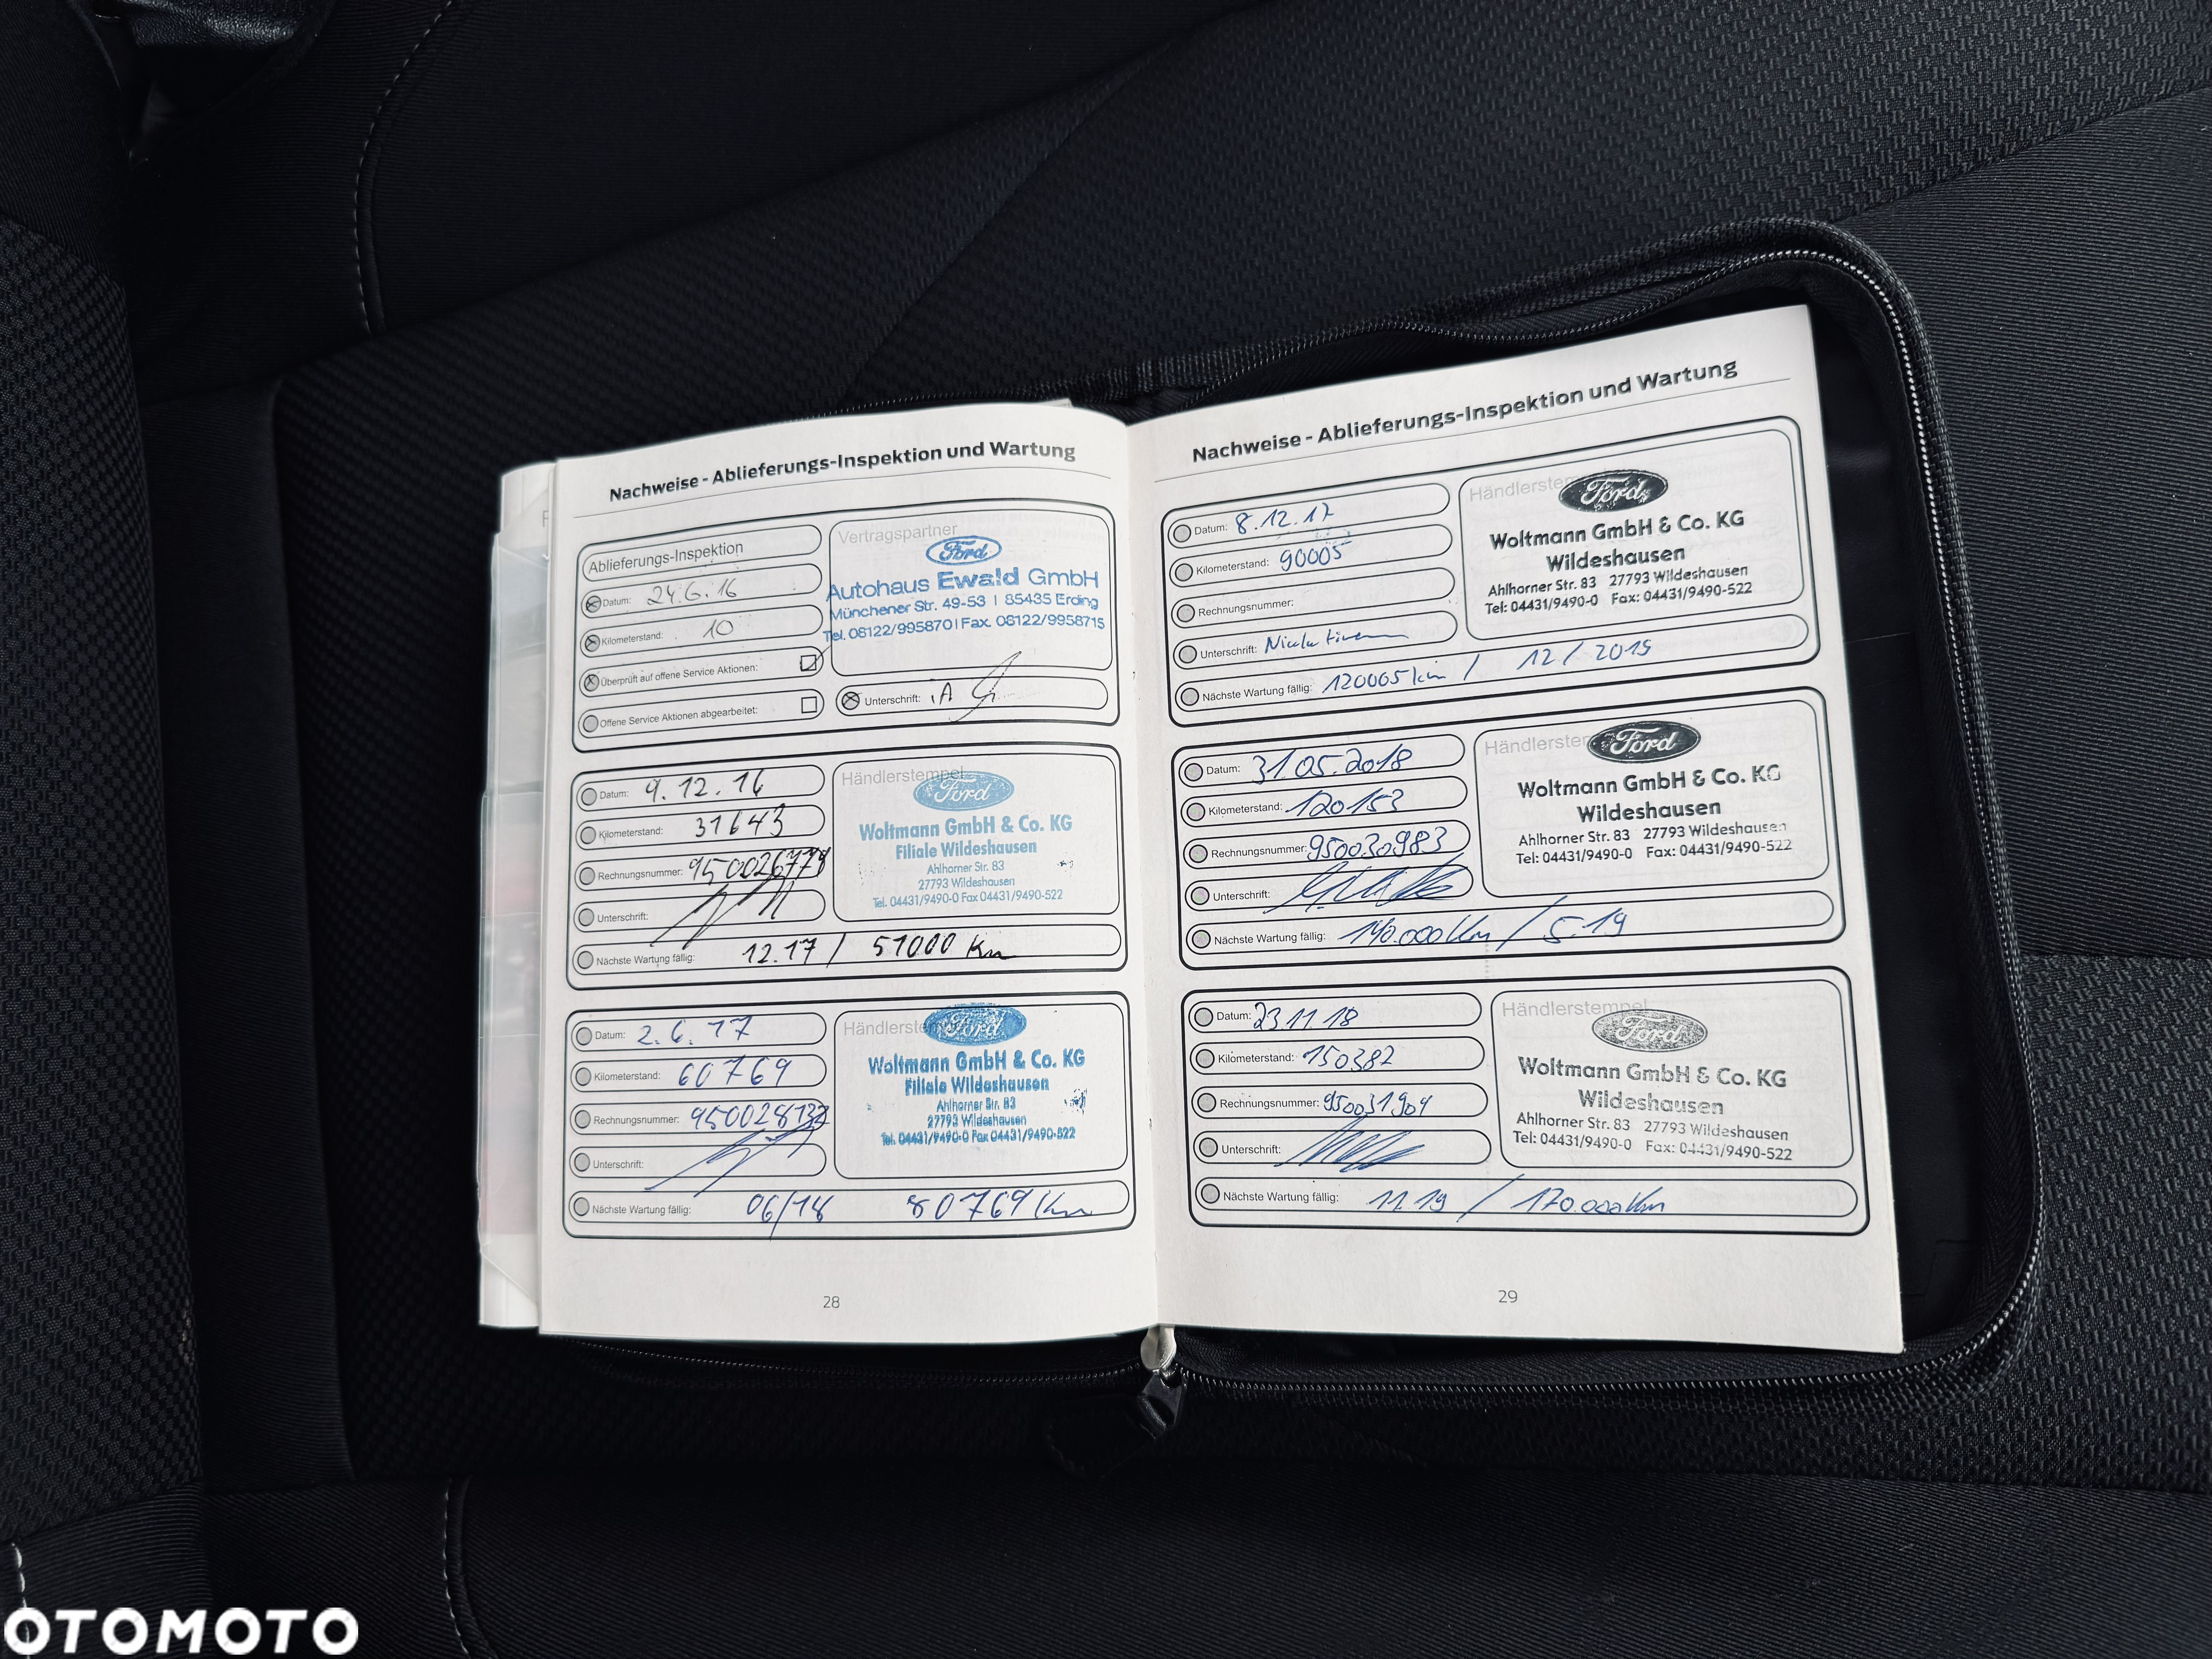 Nachweise - Ablieferungs-Inspektion und Wartung
Ablieferungs-Inspektion
Datum: 24.6.16
Kilometerstand: 10
Überprüft auf offene Service Aktionen:
Offene Service Aktionen abgearbeitet:
Vertragspartner
Ford
Autohaus Ewald GmbH
Münchener Str. 49-53 | 85435 Erding
Tel. 08122/995870 | Fax. 08122/9958715
Unterschrift: iA
Datum: 9.12.16
Kilometerstand: 31643
Rechnungsnummer: 950026779
Unterschrift:
Nächste Wartung fällig: 12.17 / 51000 Km
Händlerstempel
Ford
Woltmann GmbH & Co. KG
Filiale Wildeshausen
Ahlhorner Str. 83
27793 Wildeshausen
Tel. 04431/9490-0 Fax 04431/9490-522
Datum: 2.6.17
Kilometerstand: 60769
Rechnungsnummer: 950028132
Unterschrift:
Nächste Wartung fällig: 06/18 80769 Km
Händlerstempel
Ford
Woltmann GmbH & Co. KG
Filiale Wildeshausen
Ahlhorner Str. 83
27793 Wildeshausen
Tel. 04431/9490-0 Fax 04431/9490-522
28
Nachweise - Ablieferungs-Inspektion und Wartung
Datum: 8.12.17
Kilometerstand: 90005
Rechnungsnummer:
Unterschrift:
Nächste Wartung fällig: 120005 km / 12 / 2019
Händlerstempel
Ford
Woltmann GmbH & Co. KG
Wildeshausen
Ahlhorner Str. 83 27793 Wildeshausen
Tel: 04431/9490-0 Fax: 04431/9490-522
Datum: 31.05.2018
Kilometerstand: 120153
Rechnungsnummer: 950030983
Unterschrift:
Nächste Wartung fällig: 140.000 Km / 5.19
Händlerstempel
Ford
Woltmann GmbH & Co. KG
Wildeshausen
Ahlhorner Str. 83 27793 Wildeshausen
Tel: 04431/9490-0 Fax: 04431/9490-522
Datum: 23.11.18
Kilometerstand: 150382
Rechnungsnummer: 950031904
Unterschrift:
Nächste Wartung fällig: 11.19 / 170.000 Km
Händlerstempel
Ford
Woltmann GmbH & Co. KG
Wildeshausen
Ahlhorner Str. 83 27793 Wildeshausen
Tel: 04431/9490-0 Fax: 04431/9490-522
29
OTOMOTO